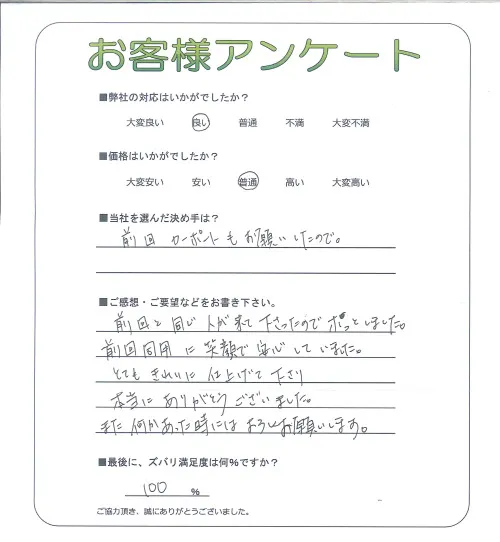 お客様アンケート
■弊社の対応はいかがでしたか？
大変良い 良い 普通 不満 大変不満
■価格はいかがでしたか？
大変安い 安い 普通 高い 大変高い
■当社を選んだ決め手は？
前回 カーポートも お願いしたので。
■ご感想・ご要望などをお書き下さい。
前回と同じ人が来て下さったのでホッとしました。
前回同用に笑顔で安心していました。
とても きれいに 仕上げて 下さり
本当に ありがとう ございました。
また 何かあった時には よろしくお願いします。
■最後に、ズバリ満足度は何％ですか？
100 %
ご協力頂き、誠にありがとうございました。